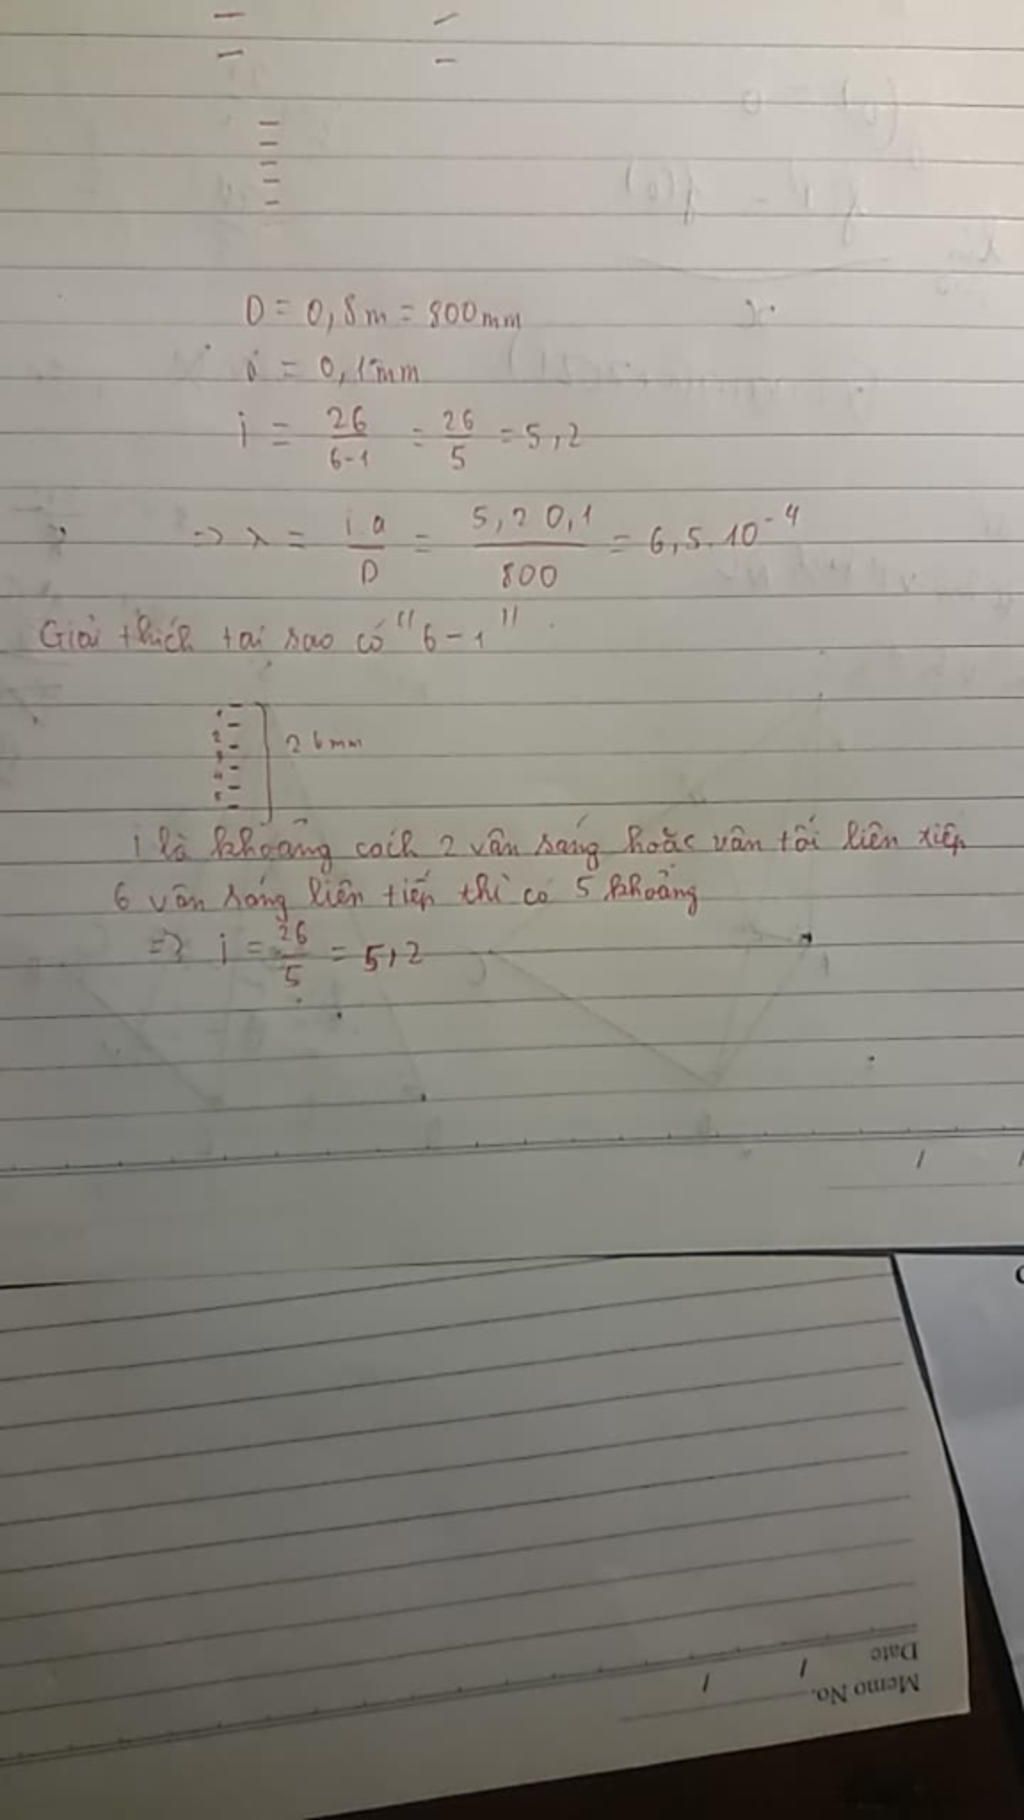 D = 0,8m = 800mm
i = 0,1mm
i = 26/6-1 = 26/5 = 5,2
=> λ = i.a/D = 5,2 0,1/800 = 6,5.10^-4
Giải thích tại sao có "6-1"
1
2
3
4
5
26mm
i là khoảng cách 2 vân sáng hoặc vân tối liên tiếp
6 vân sáng liên tiếp thì có 5 khoảng
=> i = 26/5 = 5,2
Date
Memo No.